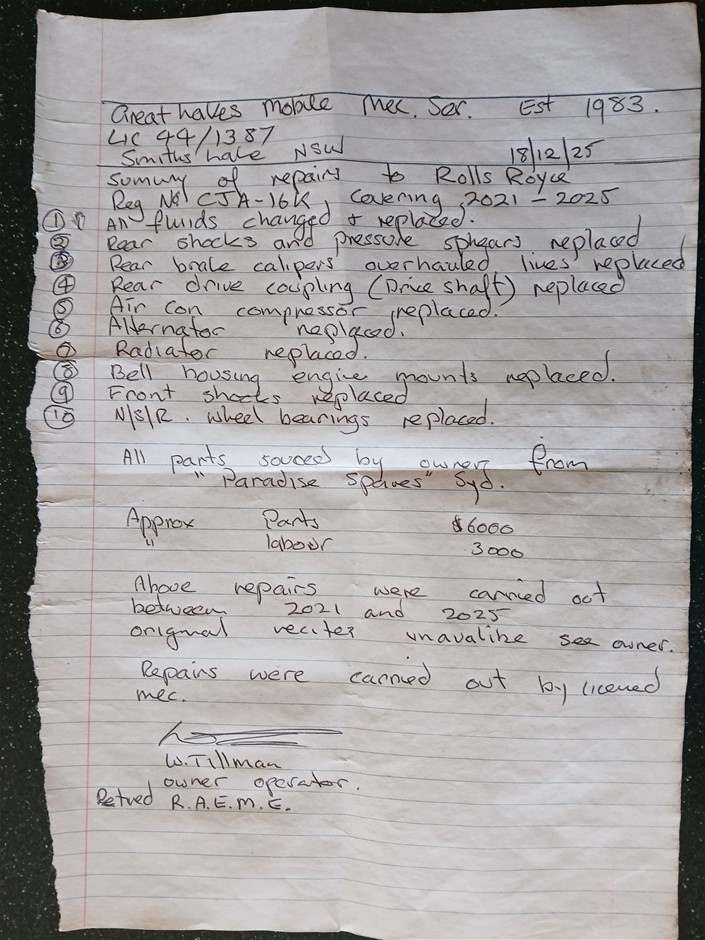 Great lakes Mobile Mec. Ser. Est 1983.
LIC 44/1387
Smiths lake NSW 18/12/25
Sumury of repairs to Rolls Royce
Reg No CJA-16K, Covering 2021-2025
① All fluids changed & replaced.
② Rear shocks and pressure sphears replaced
③ Rear brake calipers overhauled lines replaced
④ Rear drive coupling (Drive shaft) replaced
⑤ Air con compressor replaced.
⑥ Alternator replaced.
⑦ Radiator replaced.
⑧ Bell housing engine mounts replaced.
⑨ Front shocks replaced
⑩ N/S/R. wheel bearings replaced.
All parts sourced by owner from
"Paradise Spares" Syd.
Approx Parts $6000
" labour 3000
Above repairs were carried out
between 2021 and 2025
original recites unavalibe see owner.
Repairs were carried out by licened
mec.
W.Tillman
owner operator.
Retued R.A.E.M.E.